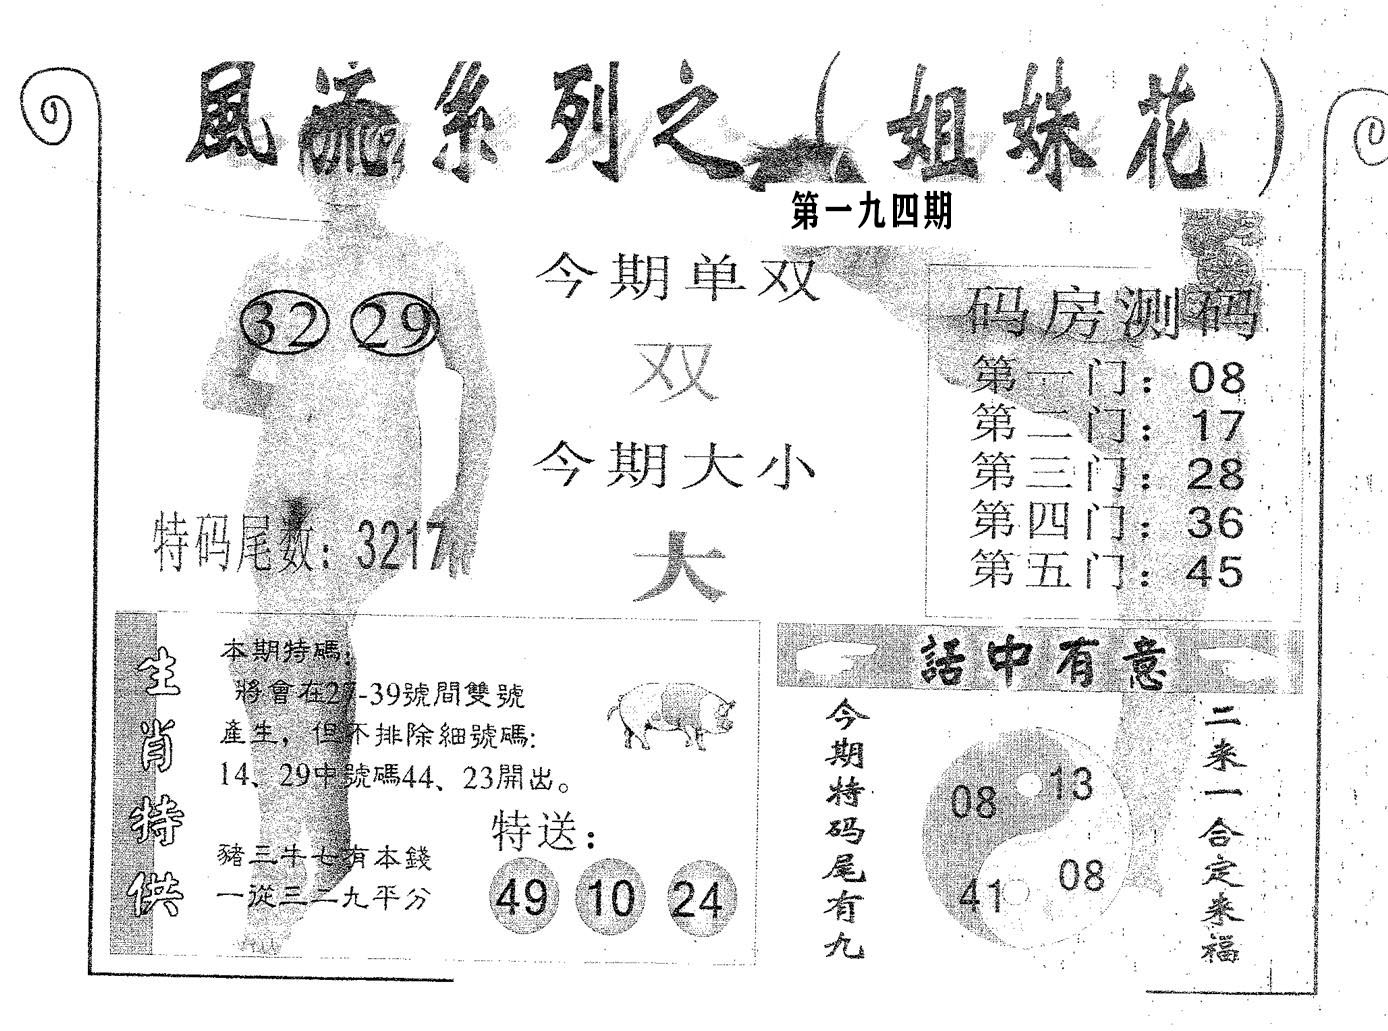 風流系列之（姐妹花）
第一九四期
32 29
今期单双
双
今期大小
大
特码尾数：3217
码房测码
第一门：08
第二门：17
第三门：28
第四门：36
第五门：45
生肖特供
本期特碼：
將會在27-39號間雙號
產生，但不排除細號碼：
14、29中號碼44、23開出。
豬三牛七有本錢
一從三二九平分
特送：
49 10 24
話中有意
今期特码尾有九
08 13
41 08
二来一合定来福